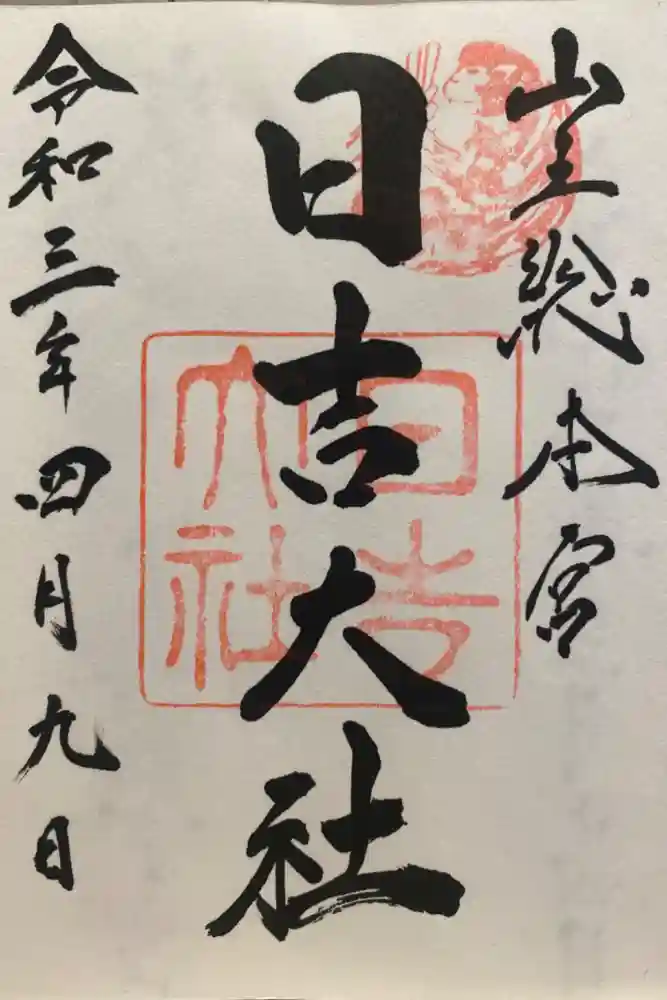 山王総本宮
日吉大社
日吉大社
令和三年四月九日